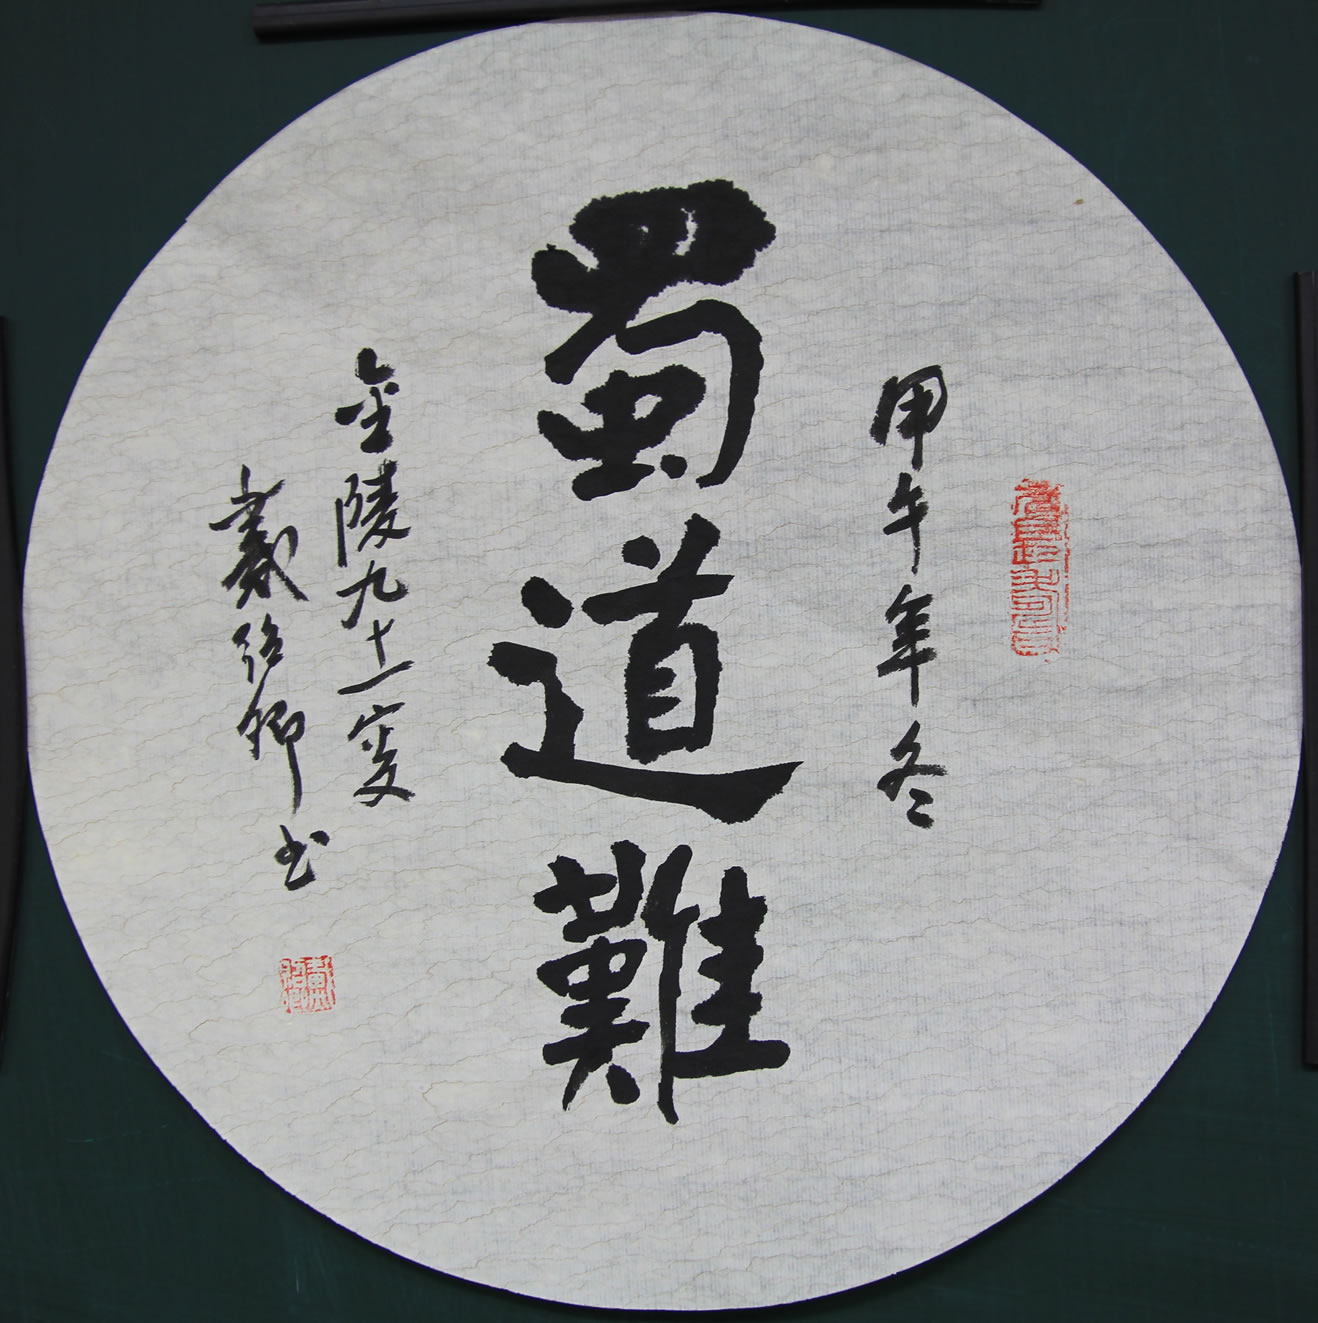 甲午年冬
蜀道難
金陵九十一叟
戴卿书